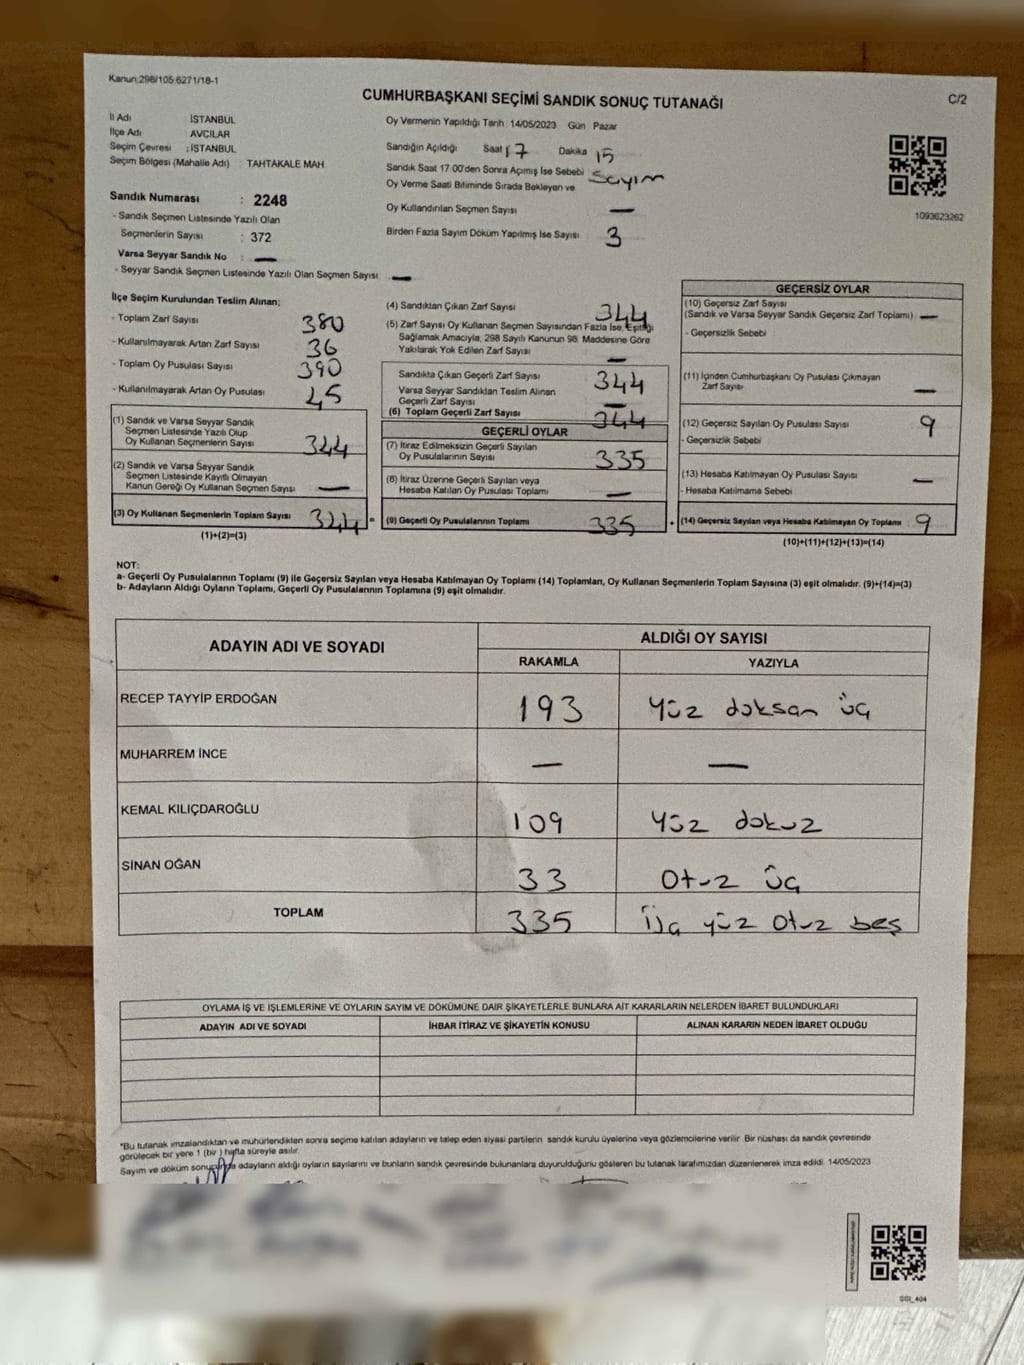 Kanun:298/105 6271/18-1
CUMHURBAŞKANI SEÇİMİ SANDIK SONUÇ TUTANAĞI
C/2
İl Adı : İSTANBUL
İlçe Adı : AVCILAR
Seçim Çevresi : İSTANBUL
Seçim Bölgesi (Mahalle Adı) : TAHTAKALE MAH.
Oy Vermenin Yapıldığı Tarih : 14/05/2023 Gün Pazar
Sandığın Açıldığı Saat 17 Dakika 15
Sandık Saat 17:00'den Sonra Açımış İse Sebebi Sayım
Oy Verme Saati Bitiminde Sırada Bekleyen ve
Oy Kullandırılan Seçmen Sayısı —
Birden Fazla Sayım Döküm Yapılmış İse Sayısı 3
1093623262
Sandık Numarası : 2248
- Sandık Seçmen Listesinde Yazılı Olan
Seçmenlerin Sayısı : 372
Varsa Seyyar Sandık No : —
- Seyyar Sandık Seçmen Listesinde Yazılı Olan Seçmen Sayısı : —
İlçe Seçim Kurulundan Teslim Alınan;
- Toplam Zarf Sayısı : 380
- Kullanılmayarak Artan Zarf Sayısı : 36
- Toplam Oy Pusulası Sayısı : 390
- Kullanılmayarak Artan Oy Pusulası : 45
(1) Sandık ve Varsa Seyyar Sandık
Seçmen Listesinde Yazılı Olup
Oy Kullanan Seçmenlerin Sayısı : 344
(2) Sandık ve Varsa Seyyar Sandık
Seçmen Listesinde Kayıtlı Olmayan
Kanun Gereği Oy Kullanan Seçmen Sayısı : —
(3) Oy Kullanan Seçmenlerin Toplam Sayısı : 344 =
(1)+(2)=(3)
(4) Sandıktan Çıkan Zarf Sayısı : 344
(5) Zarf Sayısı Oy Kullanan Seçmen Sayısından Fazla İse, Eşitliği
Sağlamak Amacıyla, 298 Sayılı Kanunun 98. Maddesine Göre
Yakılarak Yok Edilen Zarf Sayısı : —
Sandıkta Çıkan Geçerli Zarf Sayısı : 344
Varsa Seyyar Sandıktan Teslim Alınan
Geçerli Zarf Sayısı : —
(6) Toplam Geçerli Zarf Sayısı : 344
GEÇERLİ OYLAR
(7) İtiraz Edilmeksizin Geçerli Sayılan
Oy Pusulalarının Sayısı : 335
(8) İtiraz Üzerine Geçerli Sayılan veya
Hesaba Katılan Oy Pusulası Toplamı : —
(9) Geçerli Oy Pusulalarının Toplamı : 335 +
GEÇERSİZ OYLAR
(10) Geçersiz Zarf Sayısı
(Sandık ve Varsa Seyyar Sandık Geçersiz Zarf Toplamı) : —
- Geçersizlik Sebebi
(11) İçinden Cumhurbaşkanı Oy Pusulası Çıkmayan
Zarf Sayısı : —
(12) Geçersiz Sayılan Oy Pusulası Sayısı : 9
- Geçersizlik Sebebi
(13) Hesaba Katılmayan Oy Pusulası Sayısı : —
- Hesaba Katılmama Sebebi
(14) Geçersiz Sayılan veya Hesaba Katılmayan Oy Toplamı : 9
(10)+(11)+(12)+(13)=(14)
NOT:
a- Geçerli Oy Pusulalarının Toplamı (9) ile Geçersiz Sayılan veya Hesaba Katılmayan Oy Toplamı (14) Toplamları, Oy Kullanan Seçmenlerin Toplam Sayısına (3) eşit olmalıdır. (9)+(14)=(3)
b- Adayların Aldığı Oyların Toplamı, Geçerli Oy Pusulalarının Toplamına (9) eşit olmalıdır.
ADAYIN ADI VE SOYADI ALDIĞI OY SAYISI
RAKAMLA YAZIYLA
RECEP TAYYİP ERDOĞAN 193 Yüz doksan üç
MUHARREM İNCE — —
KEMAL KILIÇDAROĞLU 109 Yüz dokuz
SİNAN OĞAN 33 Otuz üç
TOPLAM 335 Üç yüz otuz beş
OYLAMA İŞ VE İŞLEMLERİNE VE OYLARIN SAYIM VE DÖKÜMÜNE DAİR ŞİKAYETLERLE BUNLARA AİT KARARLARIN NELERDEN İBARET BULUNDUKLARI
ADAYIN ADI VE SOYADI İHBAR İTİRAZ VE ŞİKAYETİN KONUSU ALINAN KARARIN NEDEN İBARET OLDUĞU
"Bu tutanak imzalandıktan ve mühürlendikten sonra seçime katılan adayların ve talep eden siyasi partilerin sandık kurulu üyelerine veya gözlemcilerine verilir. Bir nüshası da sandık çevresinde
görülecek bir yere 1 (bir) hafta süreyle asılır.
Sayım ve döküm sonucunda adayların aldığı oyların sayılarını ve bunların sandık çevresinde bulunanlara duyurulduğunu gösteren bu tutanak tarafımızdan düzenlenerek imza edildi. 14/05/2023
SSI_404